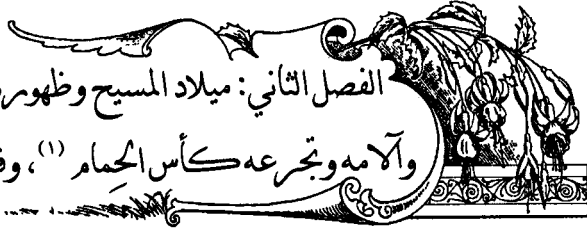 الفصل الثاني: ميلاد المسيح وظهور
وآلامه وتجرعه كأس الحِمام (١)، و